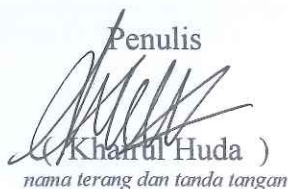 Penulis
( Khairul Huda )
nama terang dan tanda tangan